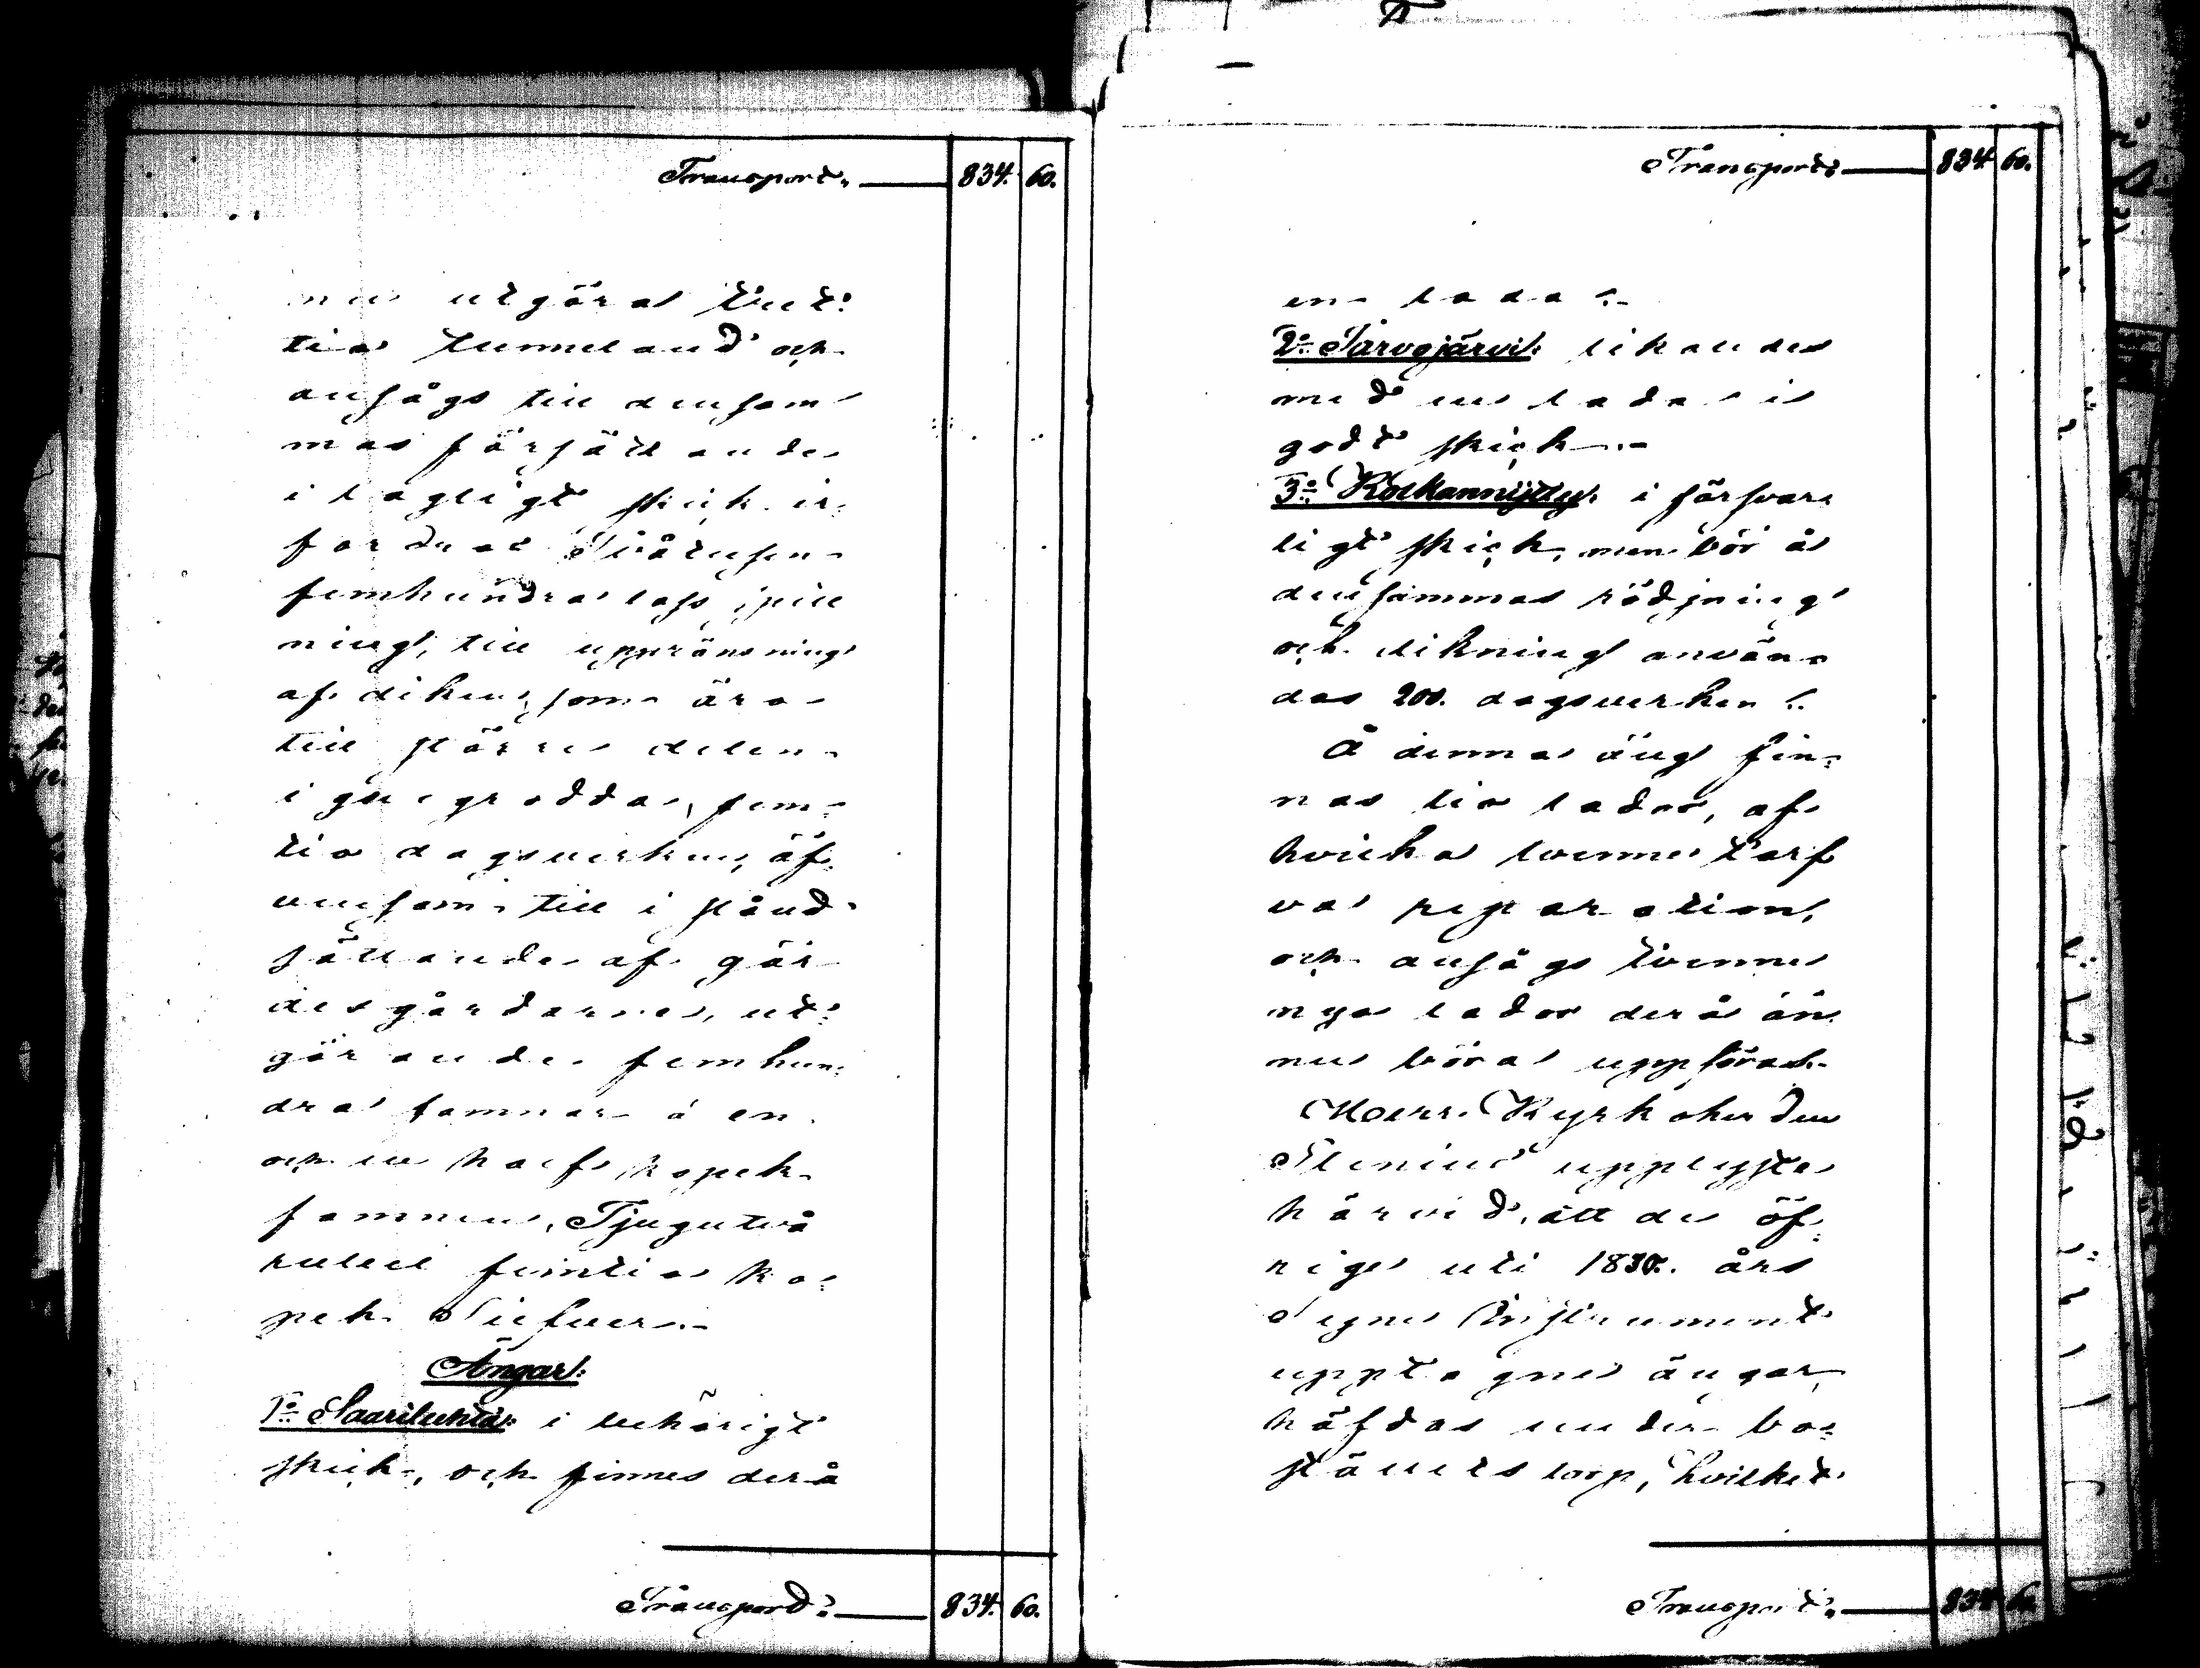 Transport. 834. 60.
nu utgöra tret¬
tio tunneland och
ansågs till densam¬
mas försättande
i lagligt skick er¬
fordras Tvåtusen
femhundra lass spill
ning, till uppränsning
af diken, som äro
till större delen
igengrodda, fem¬
tio dagsverken, äf¬
vensom till i stånd¬
sättande af gär¬
desgårdarne, ut¬
görande femhun¬
dra famnar á en
och en half kopek
famnen, Tjugutvå
rubel femtio ko¬
pek Silfver.
Ängar:
1o Saariluhta: i behörigt
skick, och finnes derå
Transport 834. 60.
Transport 834 60.
en lada.
2o Särvojärvi: likaledes
med en lada i
godt skick.
3o Koskannijtty: i försvar¬
ligt skick, men bör å
densamma rödjning
och dikning använ¬
das 200. dagsverken.
Å denna äng fin¬
nas tio lador, af
hvilka tvenne tarf
va reparation,
och ansågs tvenne
nya lador derå än
nu böra uppföras.
Herr Kyrkoherden
Stenius upplyste
härvid, att de öf¬
riga uti 1830. års
Syne Instrument
upptagne ängar
häfdas under bo¬
ställets torp, hvilket
Transport 834 60.